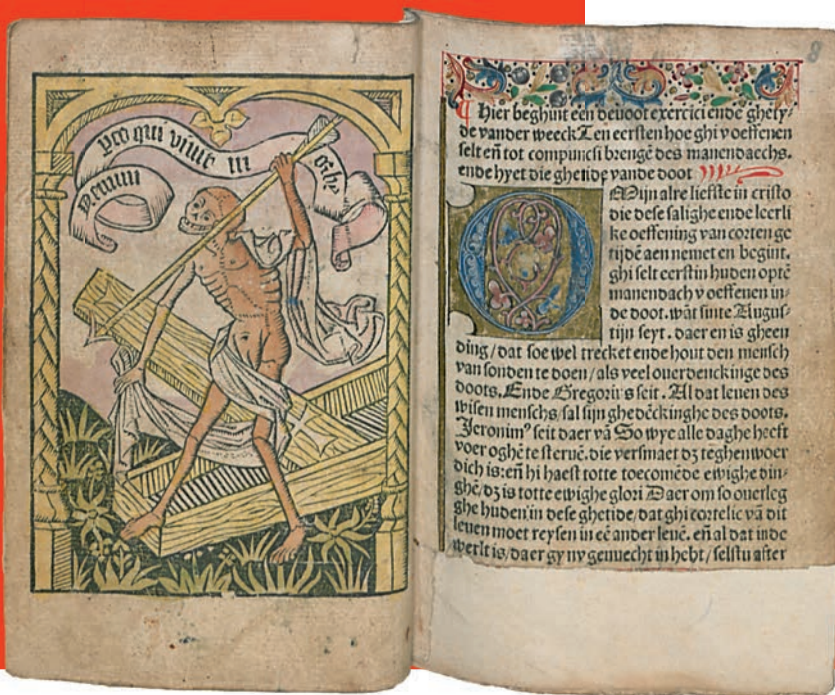 Nemini
pco qui viuit in
orbe
8
¶ Hier beghint een deuoot exercici ende ghety/
de vander weeck Ten eersten hoe ghi v oeffenen
selt en̄ tot compuncsi brengē des manendaechs.
ende hyet die ghetide vande doot
O Mijn alre liefste in cristo
die dese salighe ende leerli
ke oeffening van corten ge
tijdē aen nemet en begint.
ghi selt eerstin huden optē
manendach v oeffenen in/
de doot. wāt sinte Augus/
tijn seyt. daer en is gheen
ding/dat soe wel trecket ende hout den mensch
van sonden te doen/als veel ouerdenckinge des
doots. Ende Gregoriꝰs seit. Al dat leuen des
wisen menschs/sal sijn ghedēckinghe des doots.
Jeronimꝰ seit daer vā So wye alle daghe heeft
voer oghē te steruē. die versmaet dꝫ teghenwoer
dich is: en̄ hi haest totte toecomēde ewighe din/
ghē/dꝫ is totte ewighe glori Daer om so ouerleg
ghe huden in dese ghetide/dat ghi cortelic vā dit
leuen moet reysen in eē ander leuē. en̄ al dat inde
werlt is/daer gy ny genuecht in hebt/selstu after